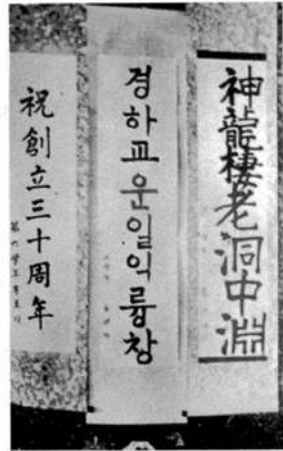 神龍棲老洞中淵
경하교운일익륭창
祝創立三十周年